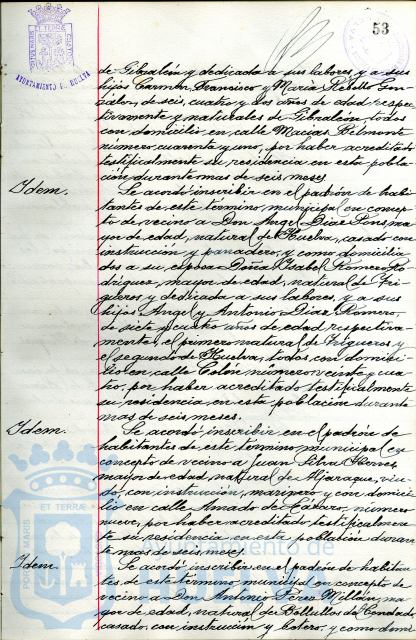 53
AYUNTAMIENTO DE HUELVA
de Gibraleón y dedicada a sus labores, y a sus
hijos Carmen, Francisco y María Rebollo Gon-
zález, de seis, cuatro y dos años de edad respec-
tivamente y naturales de Gibraleón, todos
con domicilio en calle Macías Belmonte
número cuarenta y uno, por haber acreditado
testificalmente su residencia en esta pobla-
ción durante mas de seis meses.
Idem. Se acordó inscribir en el padrón de habi-
tantes de este término municipal en concep-
to de vecino a Don Angel Diaz Pons, ma-
yor de edad, natural de Huelva, casado con
instrucción y panadero, y como domicilia-
dos a su esposa Doña Isabel Romero Ro-
dríguez, mayor de edad, natural de Tri-
gueros y dedicada a sus labores, y a sus
hijos Angel y Antonio Diaz Romero,
de siete y cuatro años de edad respectiva-
mente, el primero natural de Trigueros y
el segundo de Huelva, todos con domici-
lio en calle Colón número veinte y cua-
tro, por haber acreditado testificalmente
su residencia en esta población durante
mas de seis meses.
Idem. Se acordó inscribir en el padrón de
habitantes de este término municipal en
concepto de vecino a Juan Silva
mayor de edad, natural de Aljaraque, viu-
do, con instrucción, marinero y con domici-
lio en calle Amado de Lázaro, número
nueve, por haber acreditado testificalmen-
te su residencia en esta población duran-
te mas de seis meses.
Idem. Se acordó inscribir en el padrón de habitan-
tes de este término municipal en concepto de
vecino a Don Antonio Perez Millán, ma-
yor de edad, natural de Bollullos del Condado,
casado, con instrucción y botero, y como domi-
PORTUS MARIS ET TERRAE
Ayuntamiento de